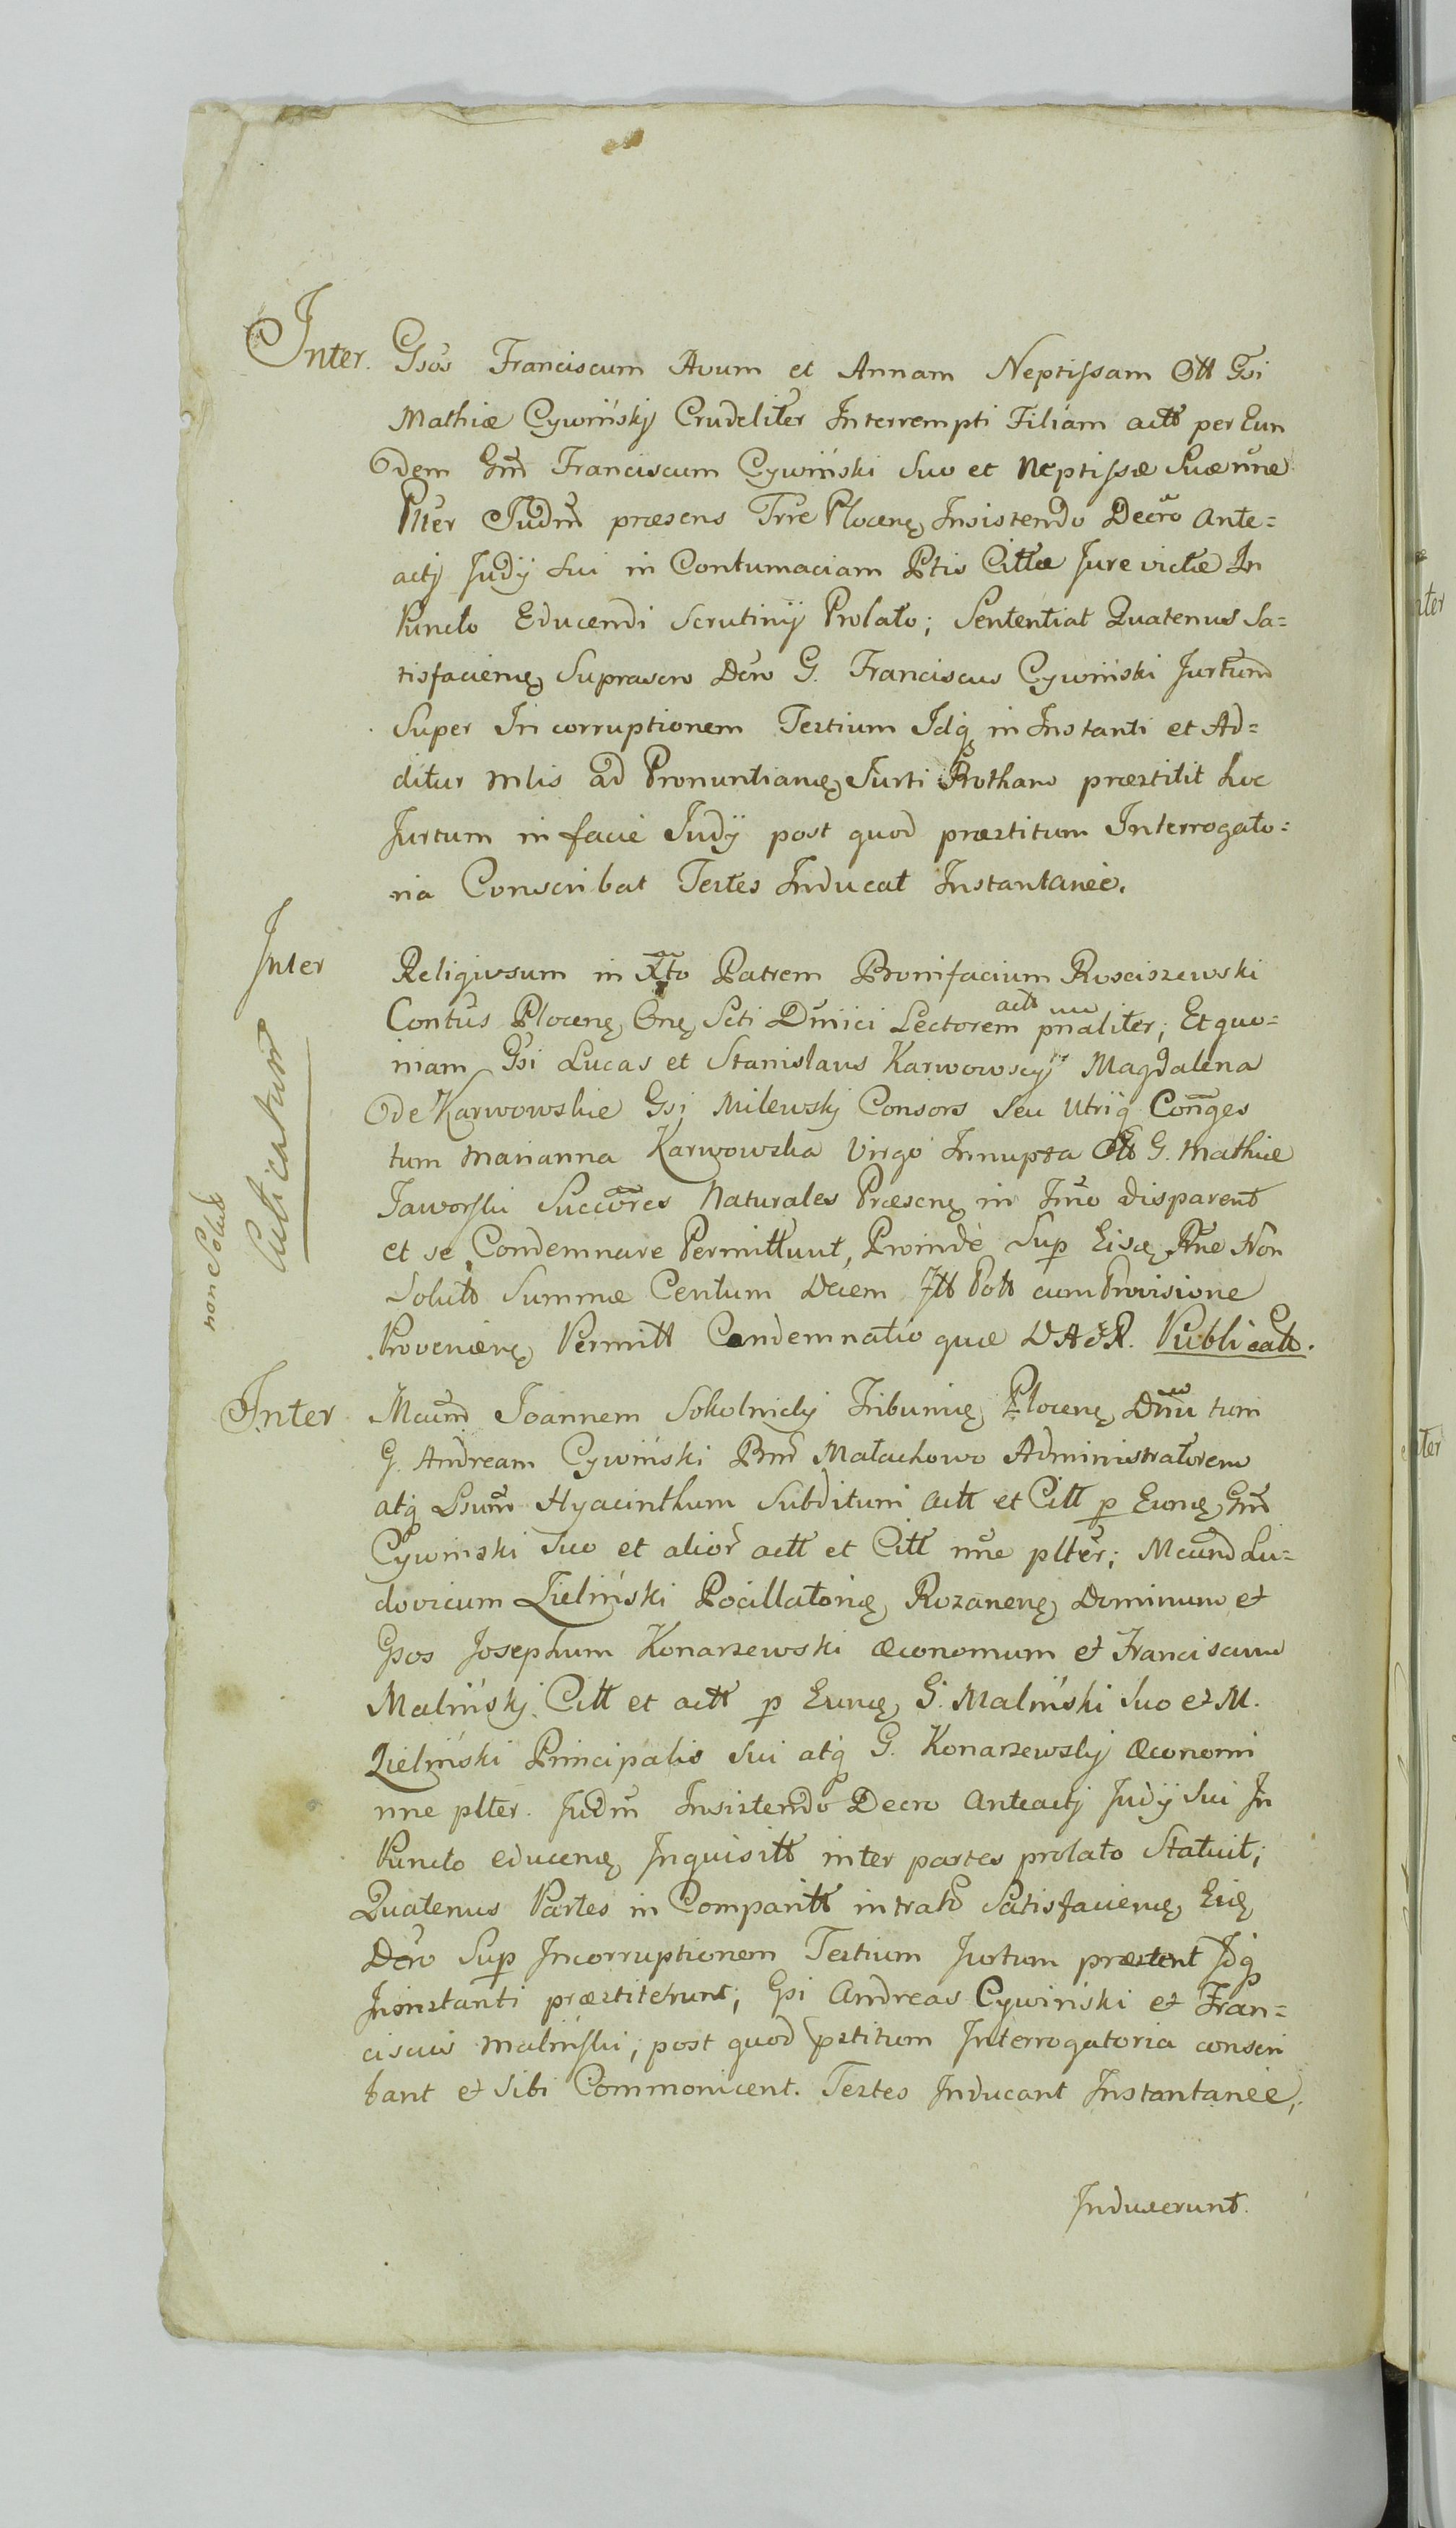 Inter. Gsos Franciscum Avum et Annam Neptissam Ott Gsi
Mathiæ Cywińskj Crudeliter Interrempti Filiam actt per Eun
dem Gnd Franciscum Cywiński Suo et Neptissæ Suæ nne
Plter Judm præsens Trre Plocenę Insistendo Decro Ante=
actj Judÿ Sui in Contumaciam Ptis Cittæ Jure victæ In
Puncto Educendi Scrutinÿ Prolato; Sententiat Quatenus Sa=
tisfacienę Suprascro Dcro G. Franciscus Cywiński Jurtum
Super Incorruptionem Testium Idq in Instanti et Ad=
ditur Mlis ad Pronuntianę Jurti Rotham præstitit hoc
Jurtum in facie Judÿ post quod præstitum Interrogato=
ria Conscribat Testes Inducat Instantanee.
Inter Religiosum in Xto Patrem Bonifacium Rosciszewski
Contus Plocenę Onę Scti Dnici Lectorem actt pnaliter; Et quo=
niam Gsi Lucas et Stanislaus Karwowscÿ Magdalena
de Karwowskie Gsi Milewskj Consors Seu Utriq Conges
tum Marianna Karwowska Virgo Innupta Ott G. Mathiæ
Jaworski Succores Naturales Præsenę in Tmo disparent
et se Condemnare Permittunt, Proinde Sup Eisę Rne Non
Solutt Summæ Centum Decem Ftt Pott cum Provisione
Provenienę Permitt Condemnatio quæ DA&R. Publicatt.
Publicatum
non Solut
Inter Mcum Joannem Sokolnicky Tribunię Plocenę Dnum tum
G. Andream Cywiński Bnr Małachowo Administratorem
atq Lsum Hyacinthum Subditum actt et Citt p Eunę Gnd
Cywinski Suo et alior actt et Citt nne plter; Mcum Lu=
dovicum Zieliński Pocillatorię Rozanenę Dominum et
Gsos Josephum Konarzewski œconomum et Franciscum
Malińskj Citt et actt p Eunę G. Maliński Suo et M.
Zieliński Principalis Sui atq G. Konarzewskj œconomi
nne plter. Judm Insistendo Decro Anteactj Judÿ Sui In
Puncto educenę Inquisitt inter partes prolato Statuit;
Quatenus Partes in Comparitt Satisfacienę Eię
Dcro Sup Incorruptionem Testium Jurtum præstent Idq
Ininstanti præstiterunt; Gsi Andreas Cywiński et Fran=
ciscus Maliński; post quod pstitum Interrogatoria conscri
bant et Sibi Commonicent. Testes Inducant Instantanee,
Induxerunt.